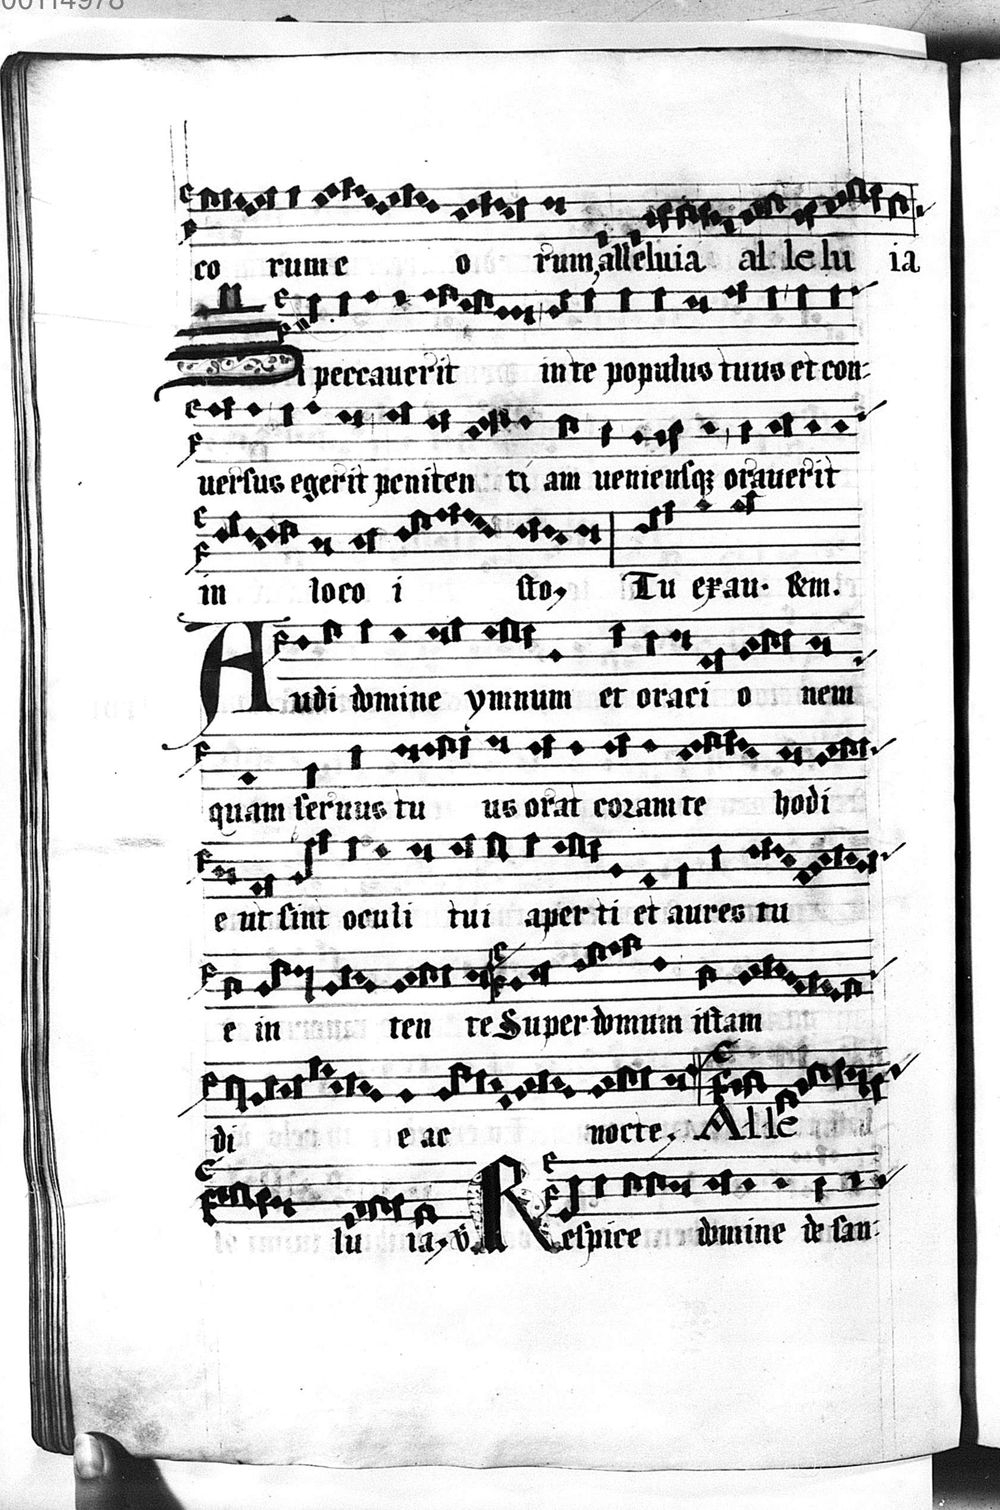 00114978
co rum e o rum, alleluia al le lu ia
Si peccauerit in te populus tuus et con-
uersus egerit peniten ti am ueniensqꝫ orauerit
in loco i sto, Tu exau.
Audi domine ymnum et oraci o nem
quam seruus tu us orat coram te hodi
e ut sint oculi tui aper ti et aures tu
e in ten te Super domum istam
di e ac nocte. Alle
lu ia, v. Respice domine de san-